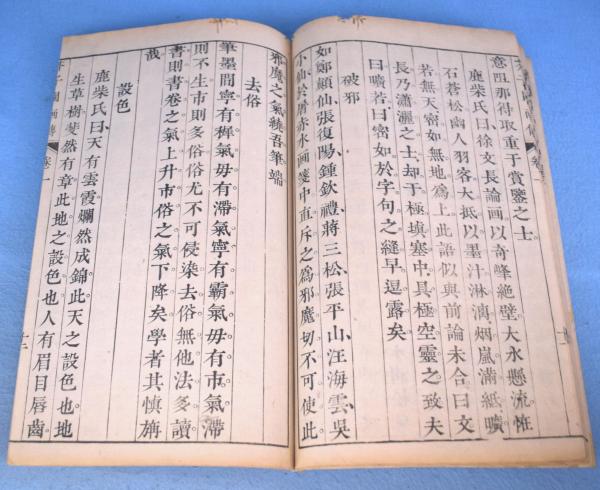 意阻那得取重于賞鑒之士
鹿柴氏曰徐文長論画以奇峰絶壁大水懸流怪
石蒼松幽人羽客大抵以墨汁淋漓烟嵐滿紙曠
若無天密如無地爲上此語似與前論未合曰文
長乃瀟灑之士却于極填塞中具極空靈之致夫
曰曠若曰密如於字句之縫早逗露矣
破邪
如鄭顛仙張復陽鍾欽禮蔣三松張平山汪海雲吳
小仙於屠赤水画箋中直斥之爲邪魔切不可使此
邪魔之氣繞吾筆端
去俗
筆墨間寧有穉氣毋有滯氣寧有霸氣毋有市氣滯
則不生市則多俗俗尤不可侵染去俗無他法多讀
書則書卷之氣上升市俗之氣下降矣學者其慎旃
哉
設色
鹿柴氏曰天有雲霞爛然成錦此天之設色也地
生草樹斐然有章此地之設色也人有眉目唇齒
卷一